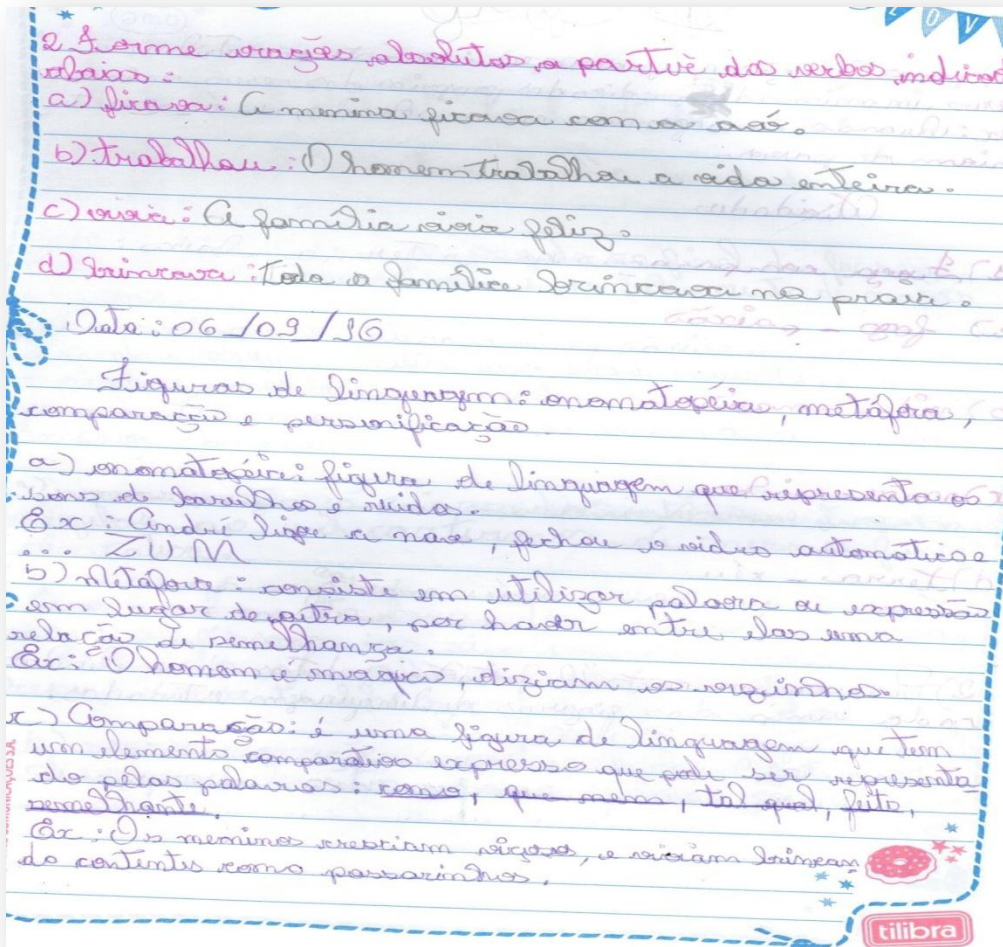 LOV
2 Forme orações absolutas a partir dos verbos indicad
abaixo:
a) ficava: A menina ficava com a avó.
b) trabalhou: O homem trabalhou a vida enteira.
c) vivia: A família vivia feliz.
d) brincava: Toda a família brincava na praia.
Data: 06/09/16
Figuras de linguagem: onomatopéia, metáfora,
comparação e personificação
a) onomatopéia: figura de linguagem que representa os
sons de barulhos e ruidos.
Ex: André ligou a nave, fechou o vidro automatico e
... ZUM
b) Metafora: consiste em utilizar palavra ou expressão
em lugar de outra, por haver entre elas uma
relação de semelhança.
Ex: O homem é mágico, diziam os vizinhos.
c) Comparação: é uma figura de linguagem que tem
um elemento comparativo expresso que pode ser representa
do pelas palavras: como, que nem, tal qual, feito,
semelhante.
Ex: Os meninos cresciam viçosos, e viviam brincan
do contentes como passarinhos.
tilibra